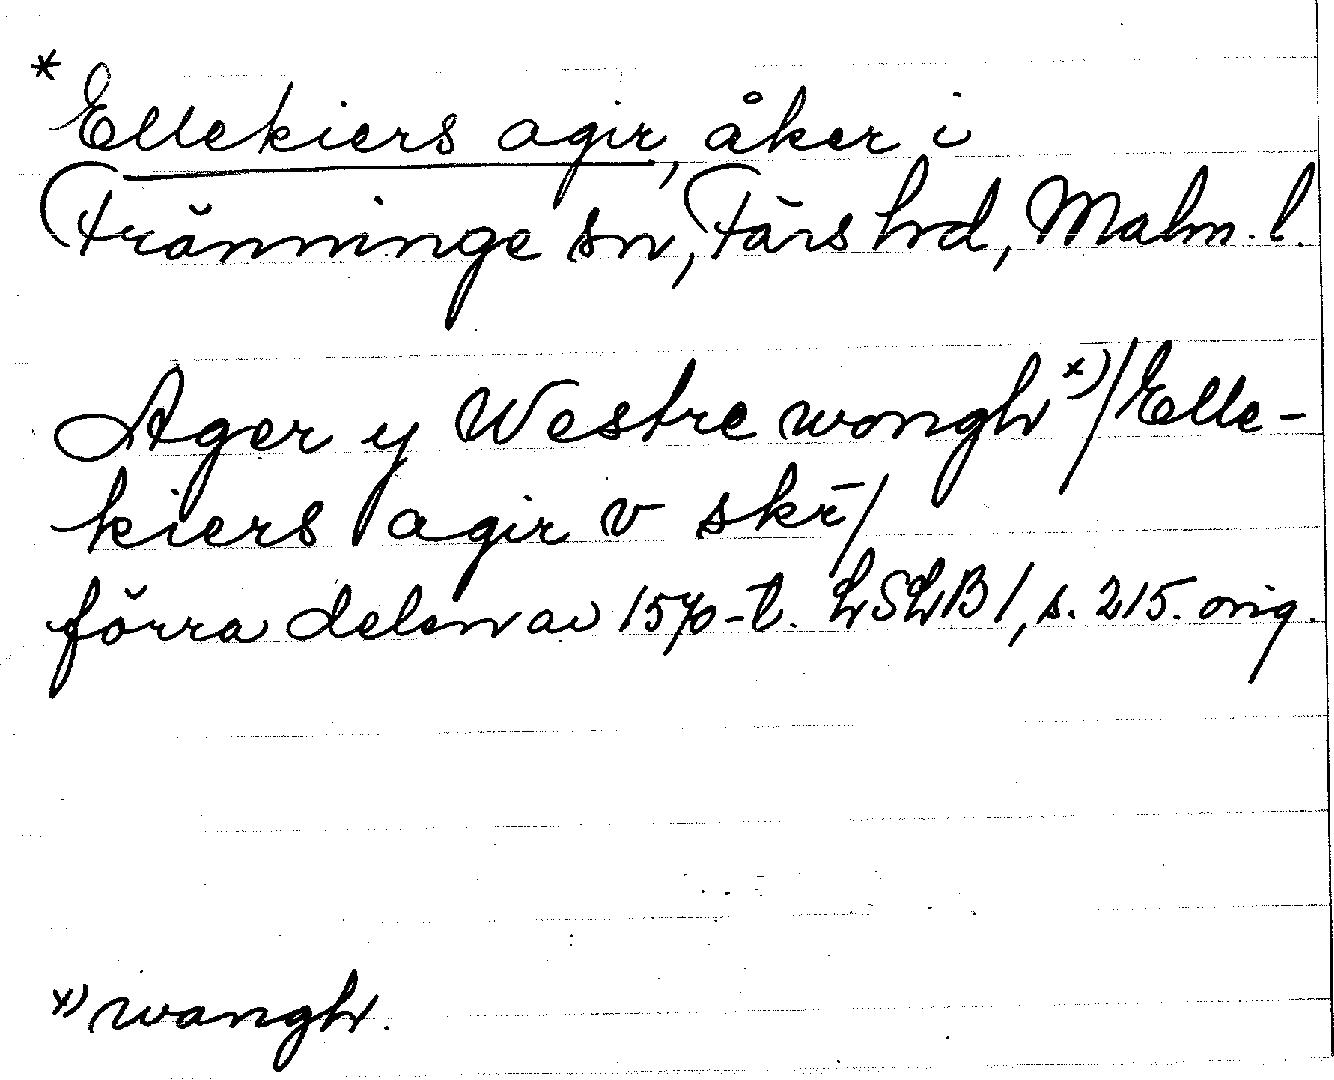 * Ellekiers agir, åker i
Tränninge sn, Färs hrd, Malm. l.
Ager y Westre wongh x)/Elle-
kiers agir v skr̄/
förra delen av 1570-t. LSLB 1, s. 215. orig.
x) wangh.